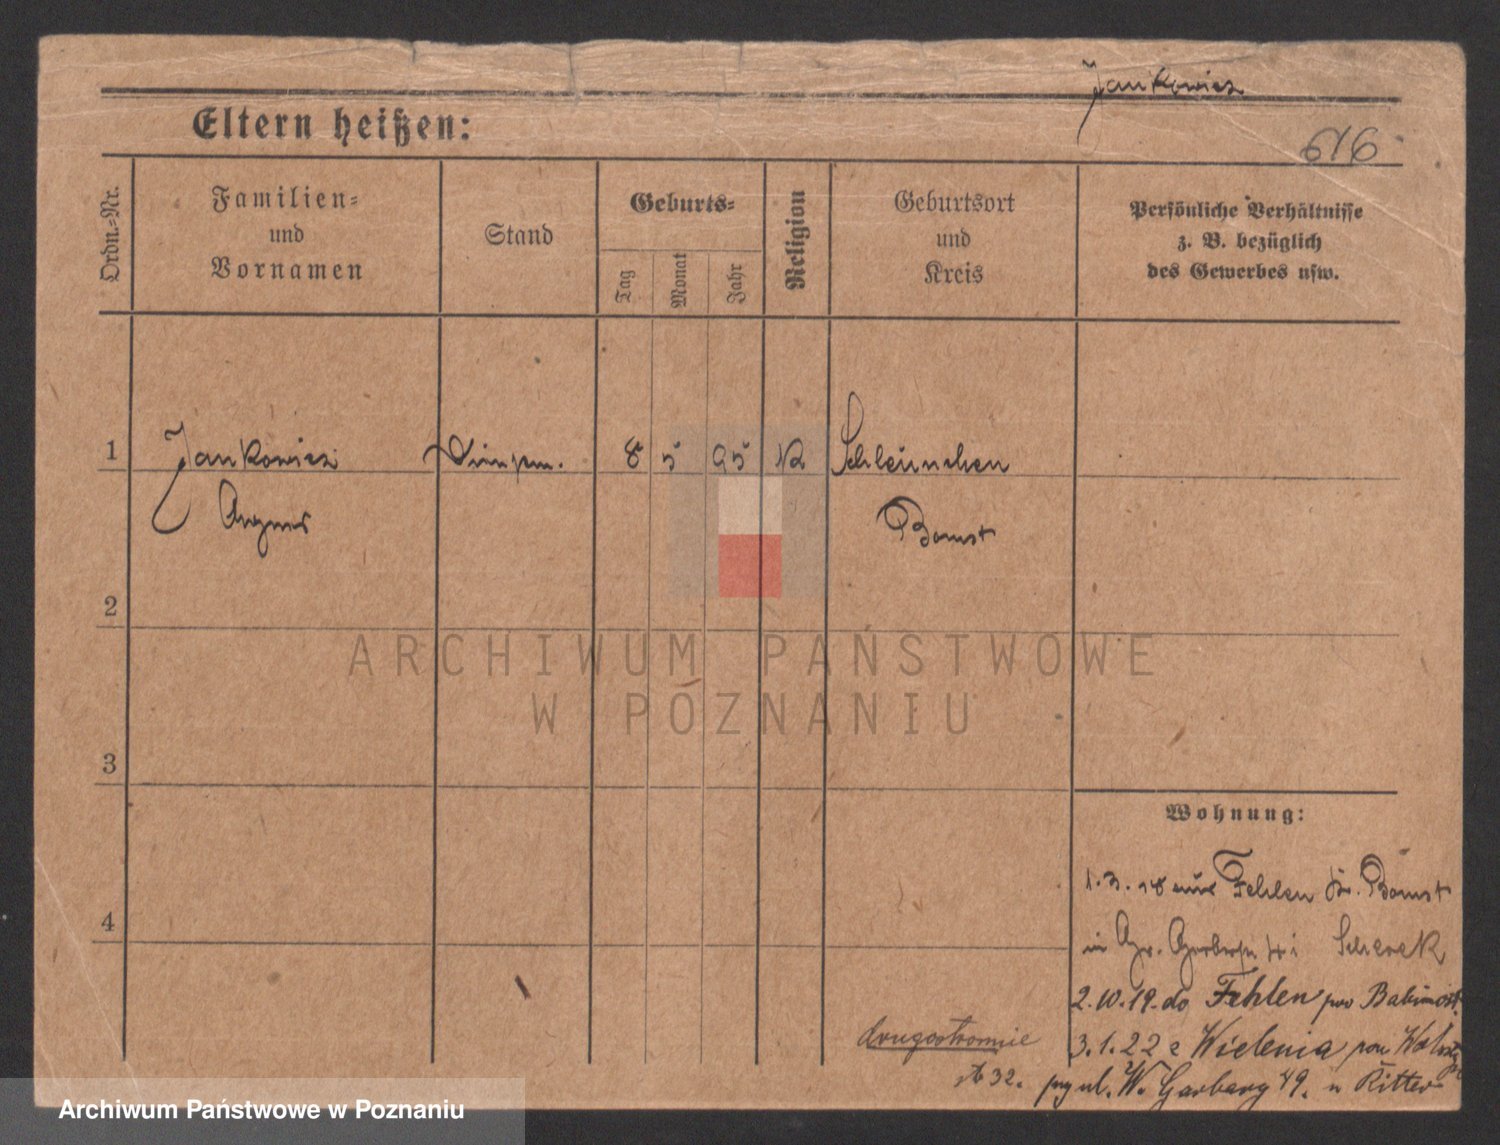 Jankowicz
616
Eltern heißen:
Ordn.-Nr.
Familien-
und
Vornamen
Stand
Geburts-
Tag
Monat
Jahr
Religion
Geburtsort
und
Kreis
Persönliche Verhältnisse
z. B. bezüglich
des Gewerbes usw.
1 Jankowicz 8 5 95 K
Agnes Bomst
2
ARCHIWUM PAŃSTWOWE
W POZNANIU
3
4
Wohnung:
1.3.18 aus Fehlen Kr. Bomst
in Gr. Gerberstr. 41 i
2.10.19. do Fehlen pow Babimost
3.1.22 z Wielenia pow
drugostronnie
32. przy ul. W. Garbary 49. u Ritter
Archiwum Państwowe w Poznaniu